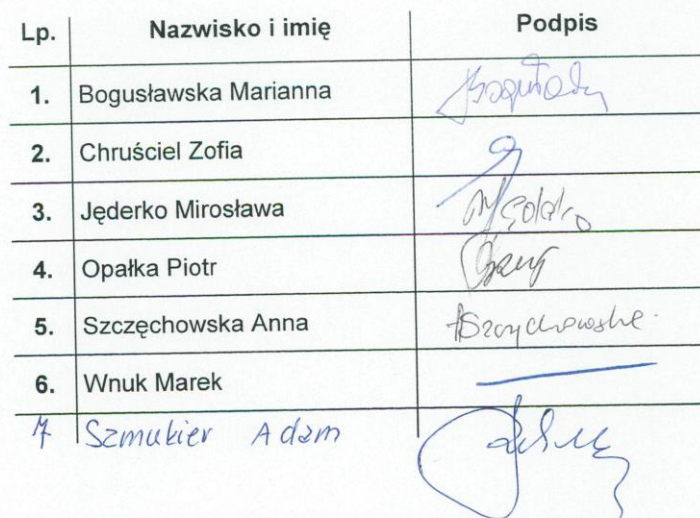 Lp. Nazwisko i imię Podpis
1. Bogusławska Marianna
2. Chruściel Zofia
3. Jęderko Mirosława
4. Opałka Piotr
5. Szczęchowska Anna
6. Wnuk Marek
7 Szmukier Adam